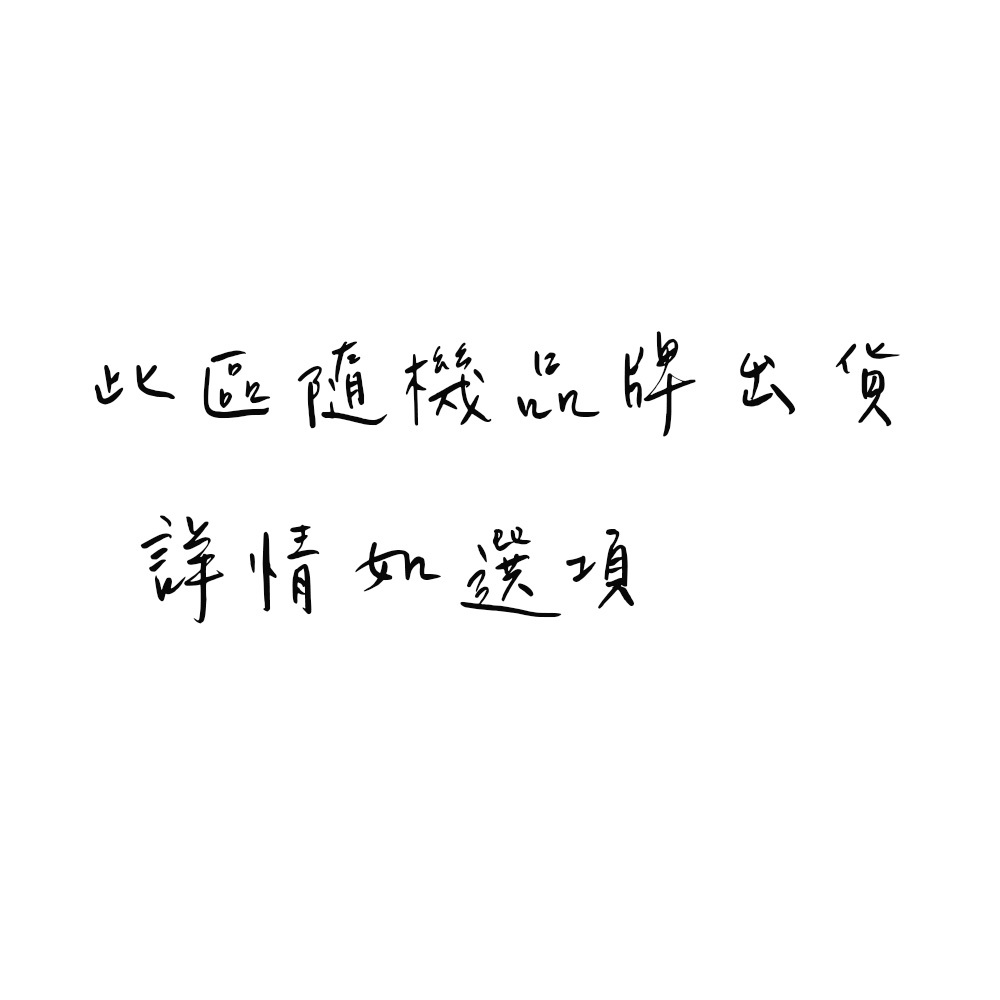 此區隨機品牌出貨
詳情如選項